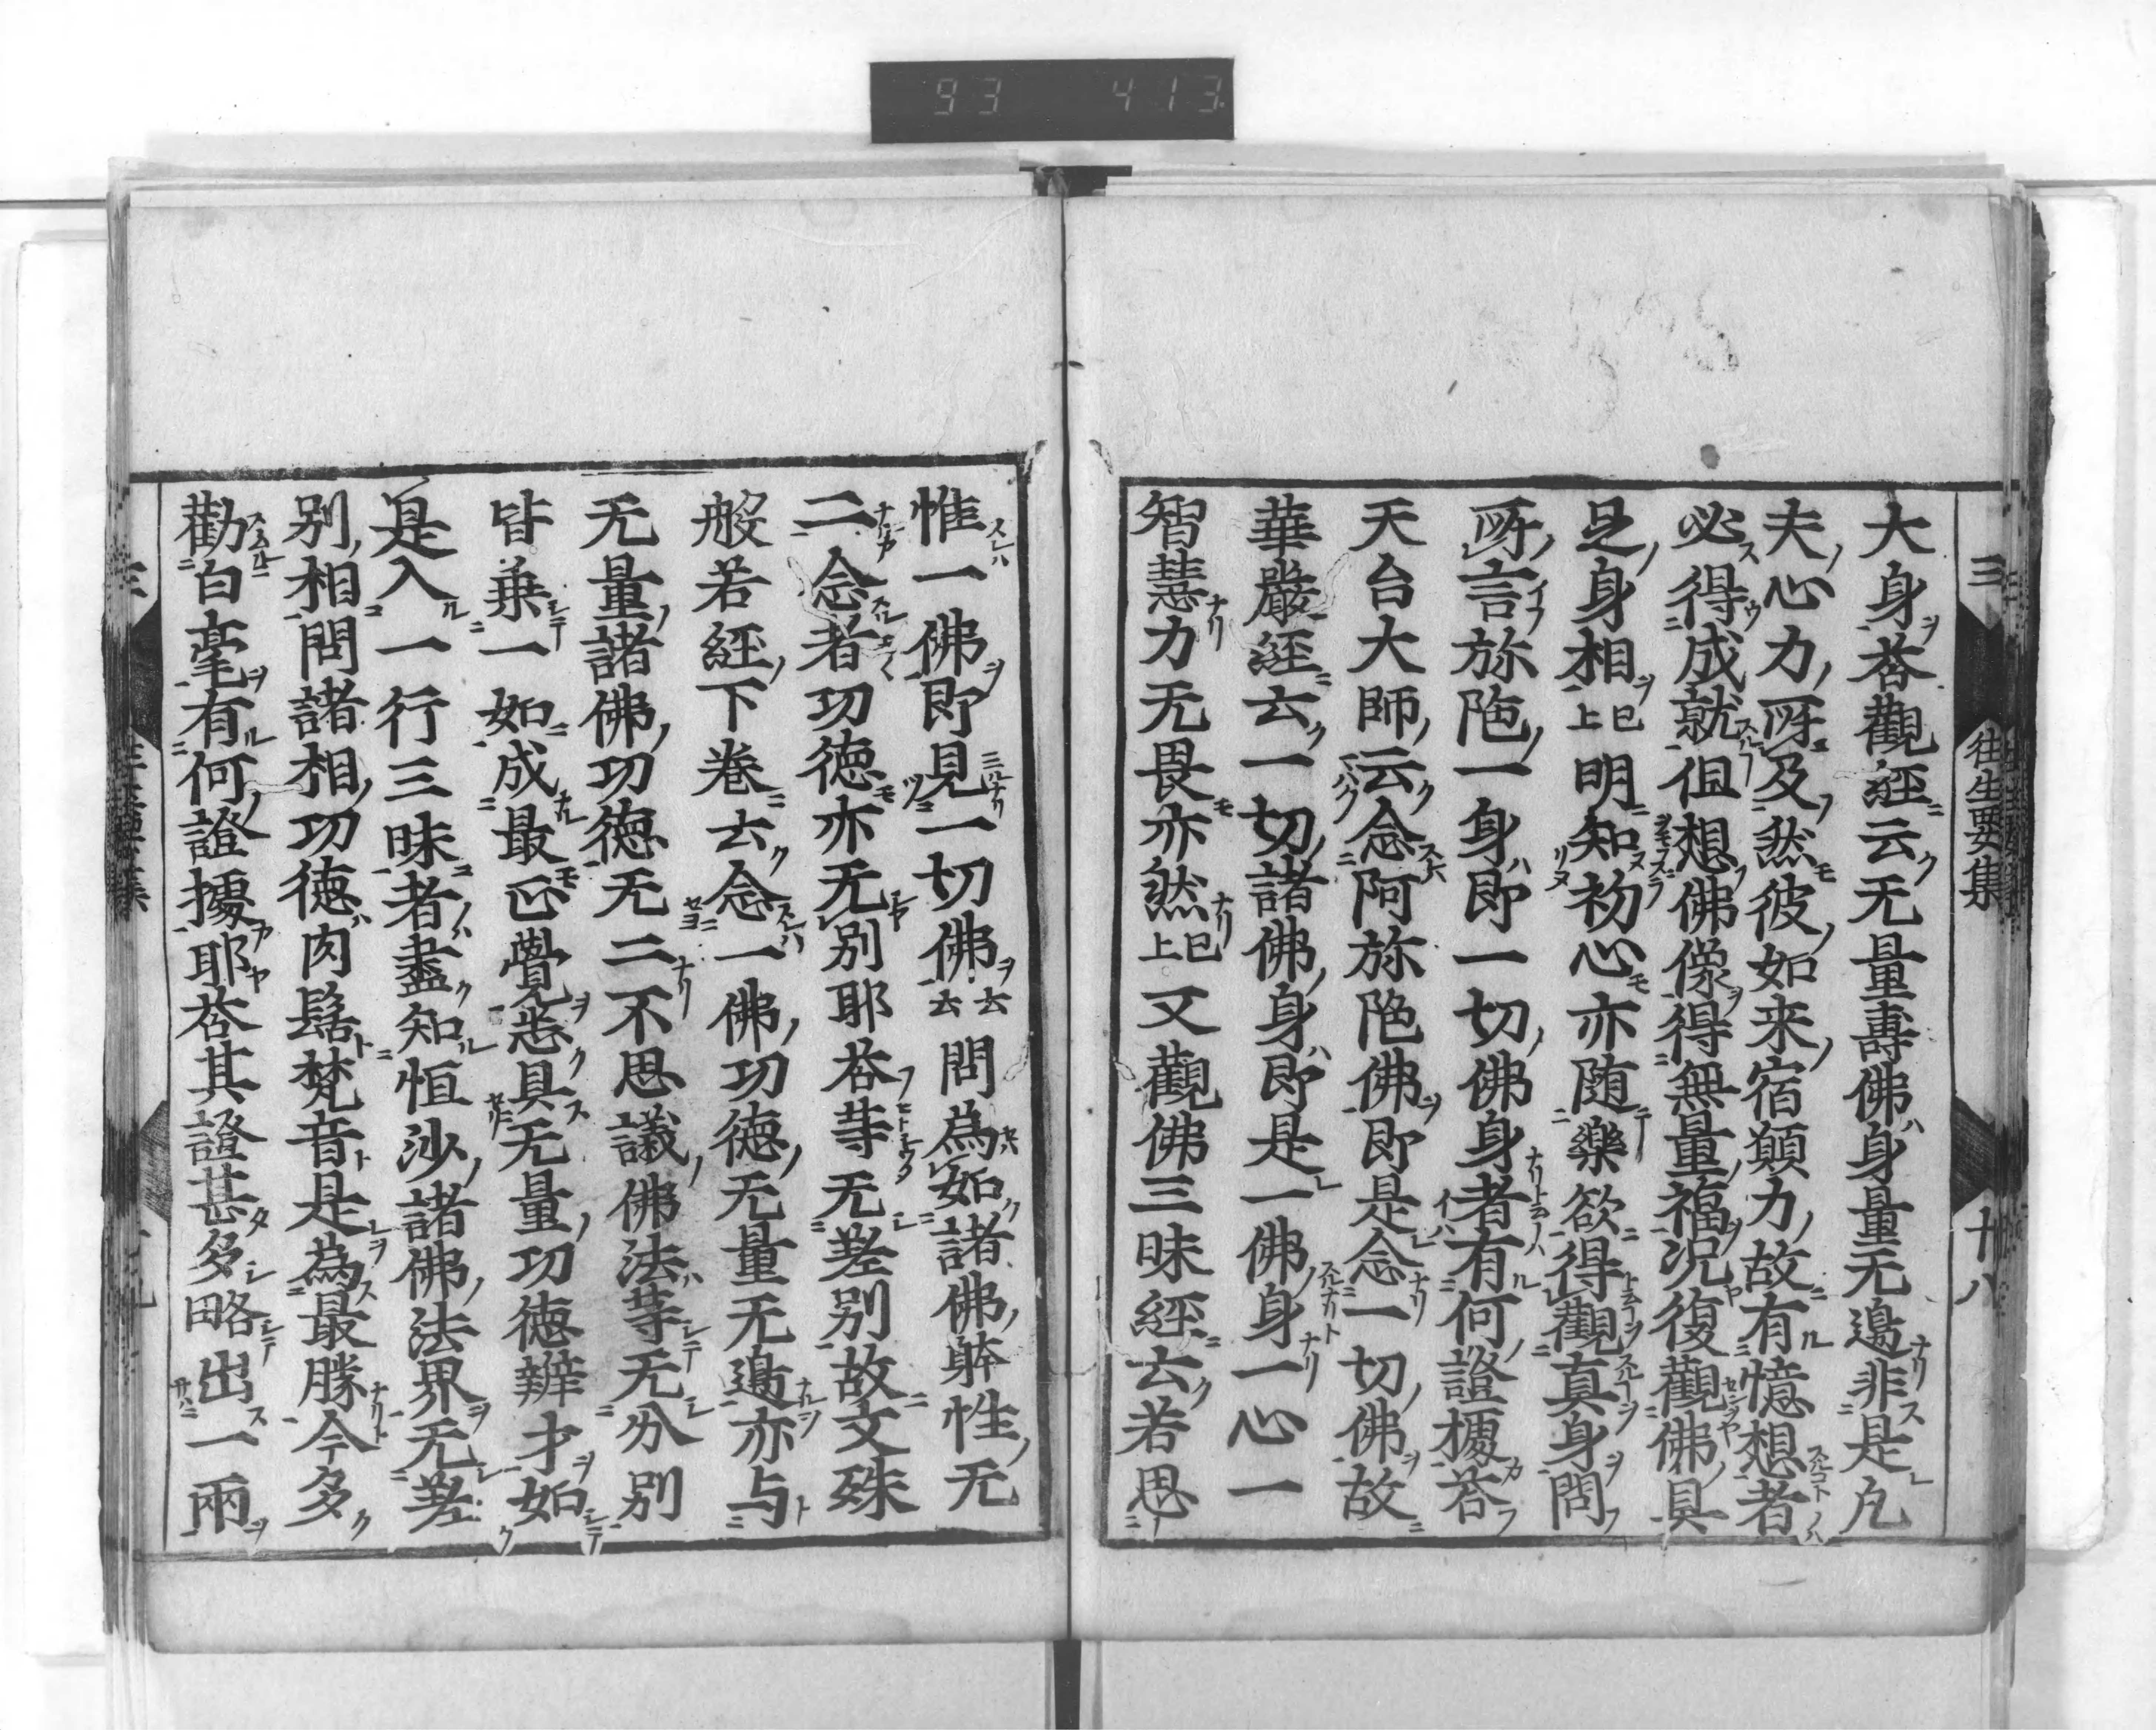 93 413
三 往生要集 十八
大身荅觀經云无量壽佛身量无邉非是凢
夫心力所及然彼如来宿願力故有憶想者
必得成就但想佛像得無量福况復觀佛具
足身相已上明知初心亦随樂欲得觀真身問
所言弥陁一身即一切佛身者有何證據荅
天台大師云念阿弥陁佛即是念一切佛故
華嚴經云一切諸佛身即是一佛身一心一
智慧力无畏亦然已上又觀佛三昧經云若思
惟一佛即見一切佛云云問為如諸佛躰性无
二念者功徳亦无別耶荅等无差別故文殊
般若經下巻云念一佛功徳无量无邉亦与
无量諸佛功徳无二不思議佛法等无分別
皆乗一如成最正覺悉具无量功徳辨才如
是入一行三昧者盡知恒沙諸佛法界无差
別相問諸相功徳肉髻梵音是為最勝今多
勸白毫有何證據耶荅其證甚多略出一兩